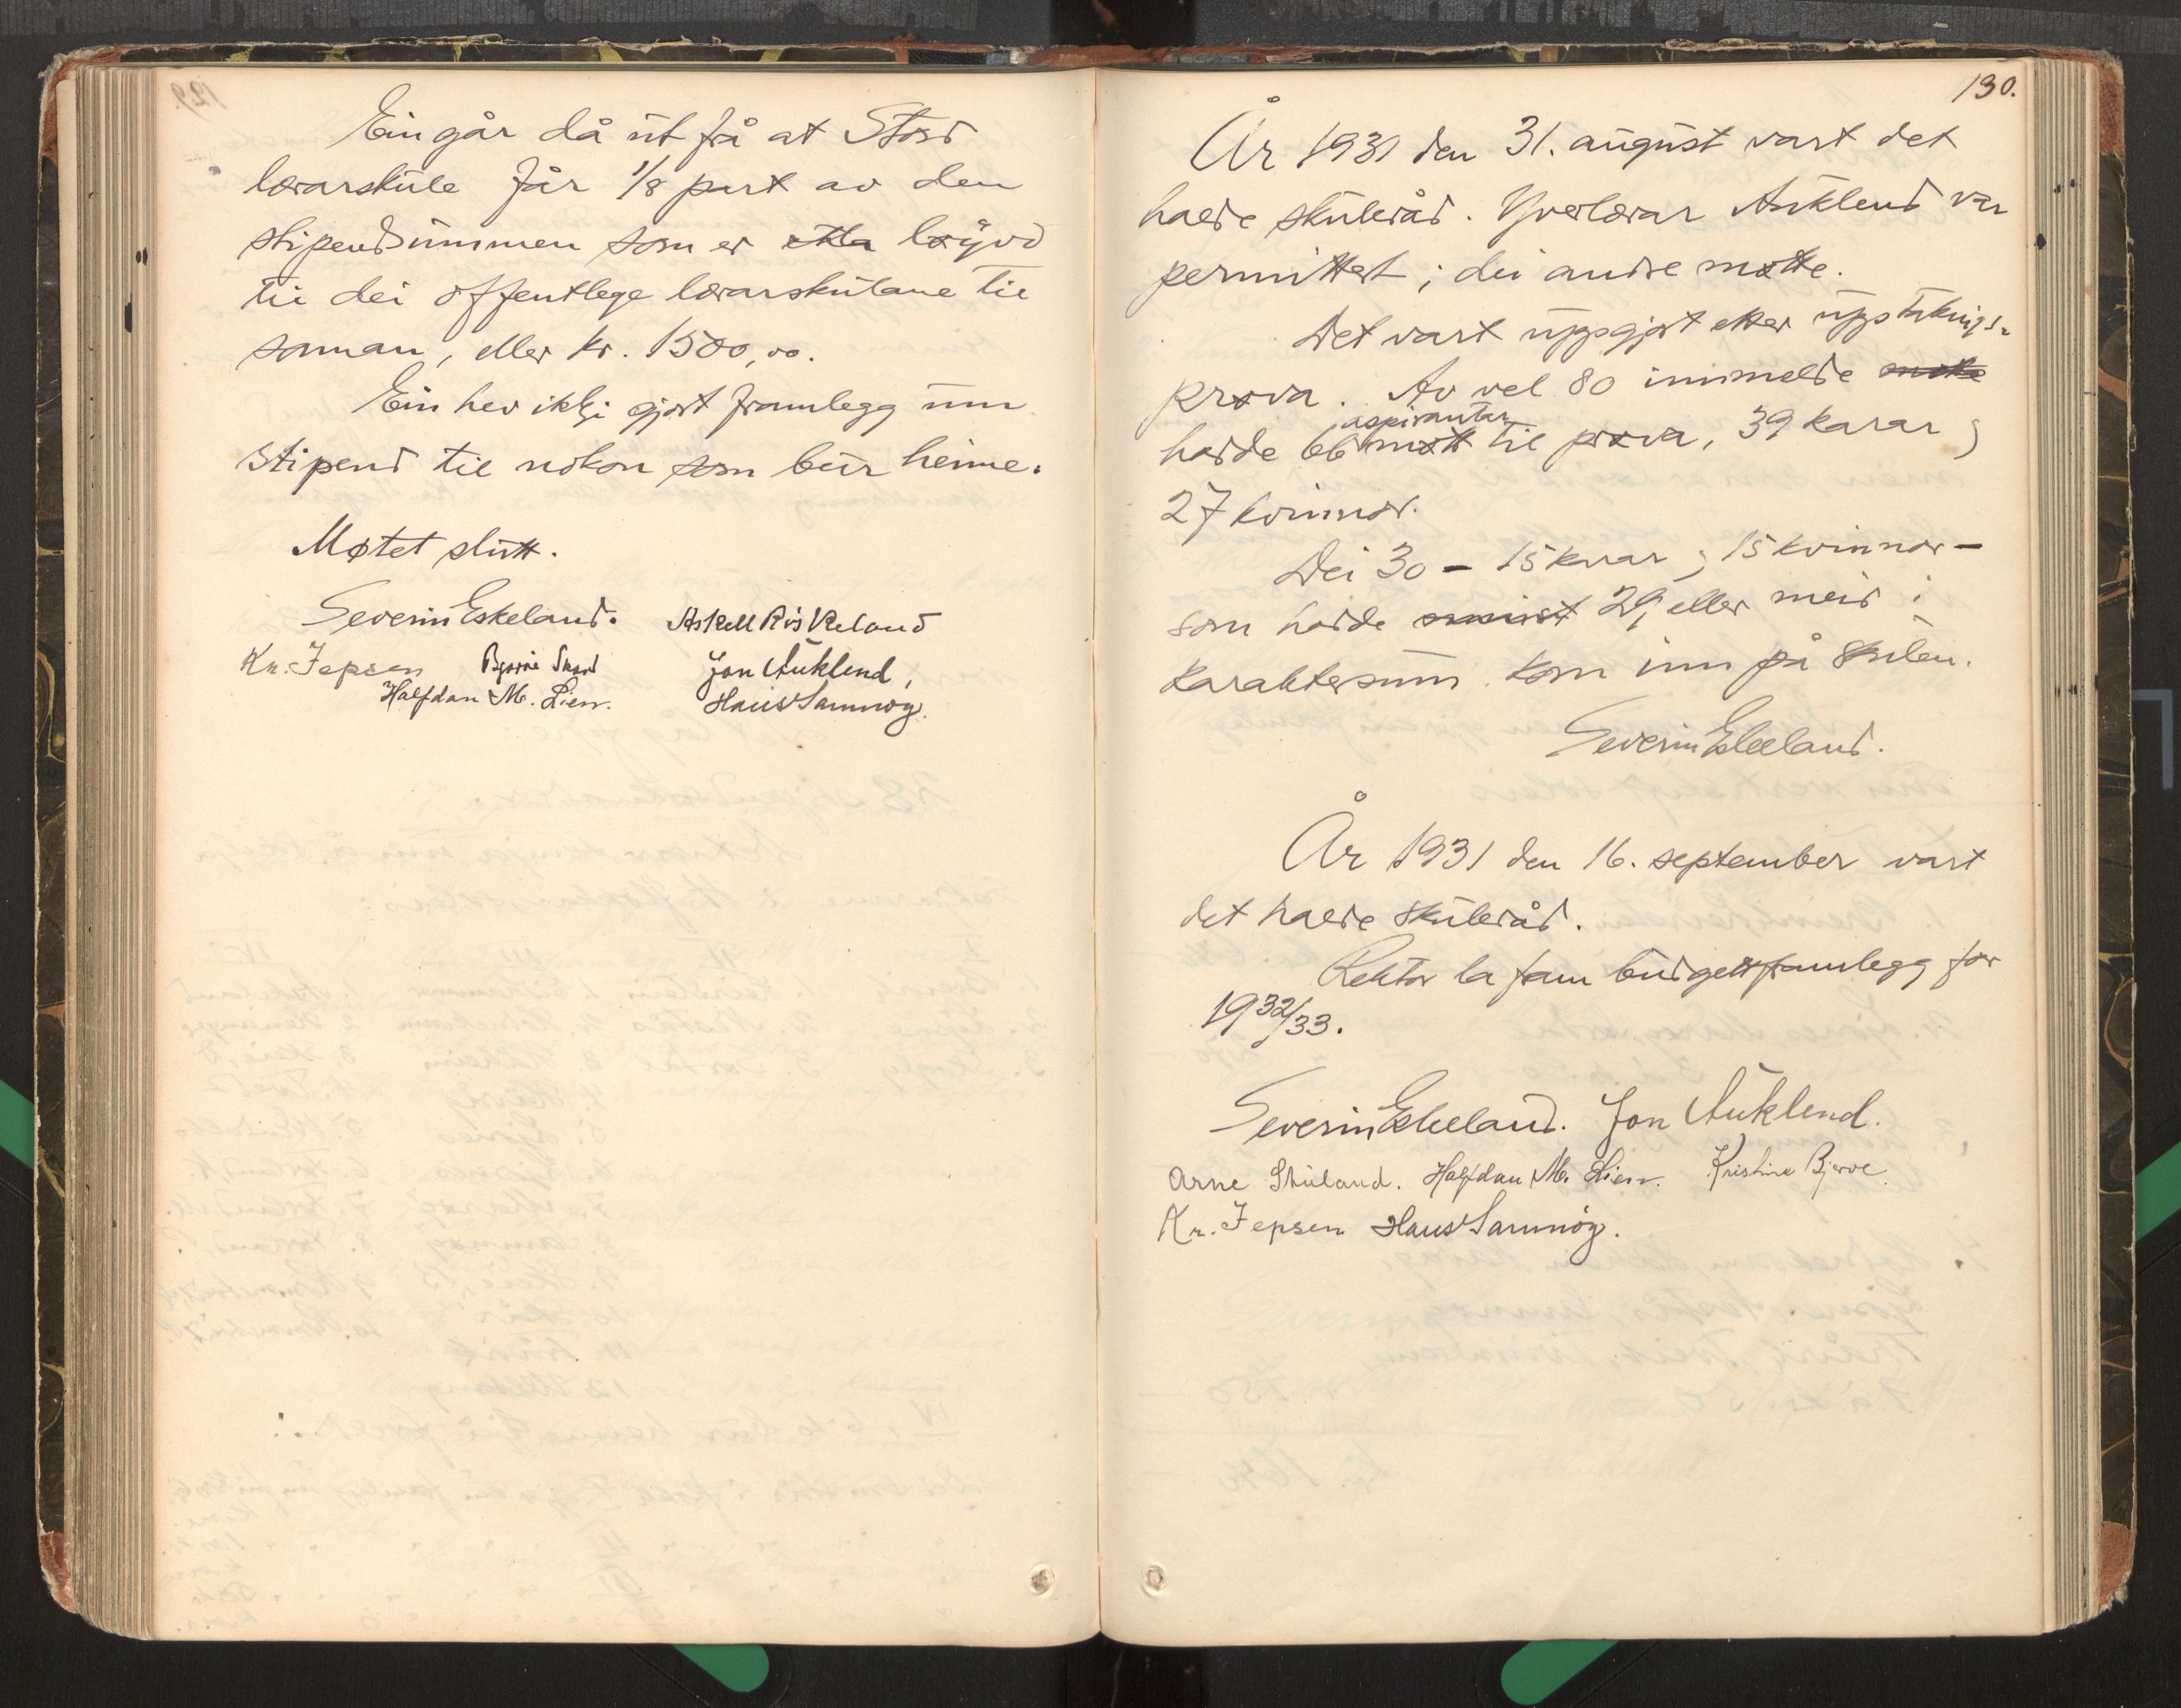 Ein går då ut frå at Stord
lærarskule får 1/8 part av den
stipendsummen som er etla løyvd
til dei offentlege lærarskulane til
saman, eller kr. 1500,00.
Ein hev ikkji gjort framlegg um
stipend til nokon som bur heime.
Møtet slutt.
Severin Eskeland. Askell Røskeland
Kr. Jepsen Bjarne Jon Auklend,
Halfdan M. Lien. Hans Samnøy.
130.
År 1931 den 31. august vart det
halde skuleråd. Yverlærar Auklend var
permittert; dei andre møtte.
Det vart uppgjort etter upptakings-
prøva. Av vel 80 innmelde møtte
aspirantar
hadde 66 møtt til prøva, 39 karar og
27 kvinnor.
Dei 30 – 15 karar og 15 kvinnor –
som hadde minst 29 eller meir i
karaktersum kom inn på skulen.
Severin Eskeland.
År 1931 den 16. september vart
det halde skuleråd.
Rektor la fram budgettframlegg for
1932/33.
Severin Eskeland. Jon Auklend.
Arne Skuland. Halfdan M. Lien. Kristine Bjerve.
Kr. Jepsen Hans Samnøy.